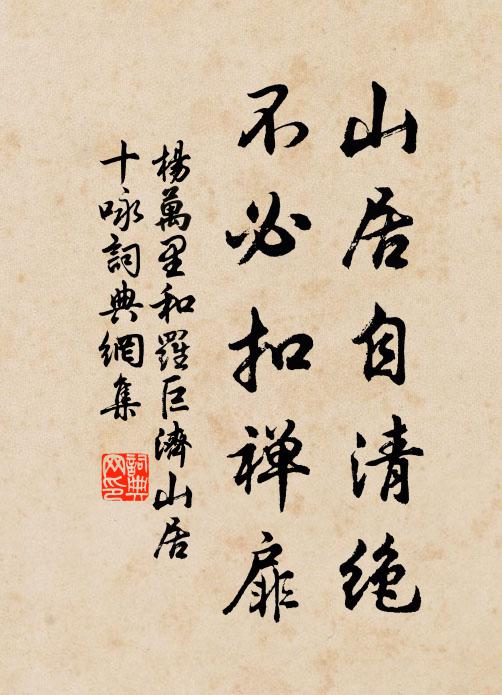 山居自清绝
不必扣禅扉
楊萬里和羅巨濟山居
十咏詞典網集
詞典
网印